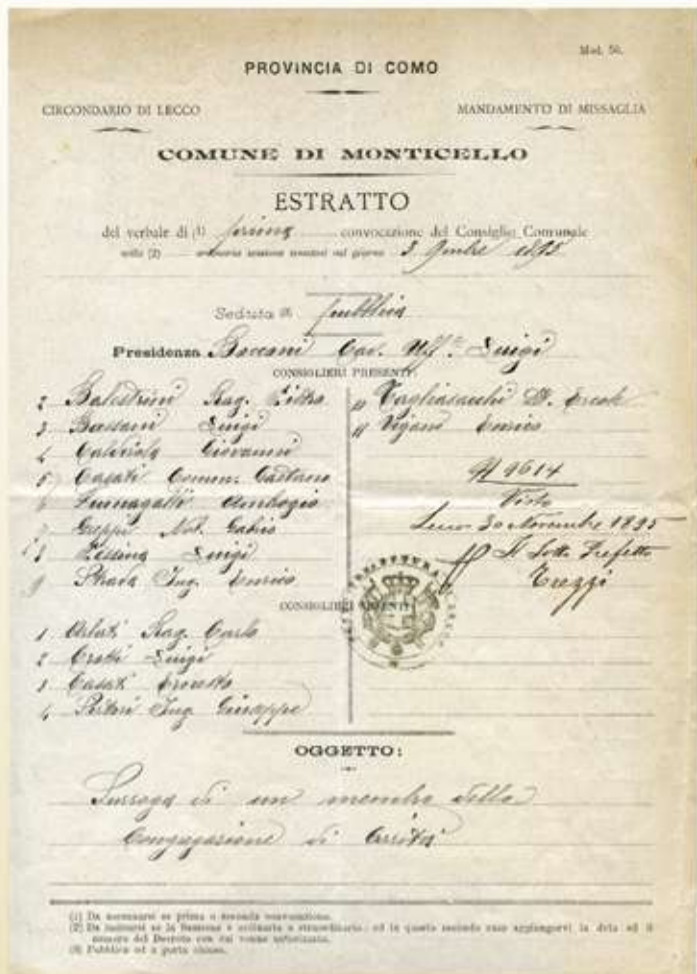 Mod. 50.
PROVINCIA DI COMO
CIRCONDARIO DI LECCO
MANDAMENTO DI MISSAGLIA
COMUNE DI MONTICELLO
ESTRATTO
del verbale di (1) prima convocazione del Consiglio Comunale
nella (2) ordinaria sessione tenutasi nel giorno 3 9mbre 1895
Seduta (3) pubblica
Presidenza Cav. Uff.e Luigi
CONSIGLIERI PRESENTI:
2 Balestrini Rag. Pietro
3 Bassani Luigi
4 Giovanni
5 Casati Comm. Gaetano
6 Fumagalli Ambrogio
7 Greppi Nob.
8 Pessina Luigi
9 Strada Ing. Enrico
10 Vagliasacchi Dr. Ercole
11 Viganò Enrico
N 9614
Visto
Lecco 30 Novembre 1895
Il Sotto Prefetto
Trezzi
CONSIGLIERI ASSENTI
1 Rag. Carlo
2 Crotti Luigi
3 Casati Ernesto
4 Sartori Ing. Giuseppe
OGGETTO:
Surroga di un membro della
Congregazione di Carità
(1) Da accennarsi se prima o seconda convocazione.
(2) Da indicarsi se la Sessione è ordinaria o straordinaria, ed in questo secondo caso aggiungervi la data ed il
numero del Decreto con cui venne autorizzata.
(3) Pubblica od a porta chiusa.